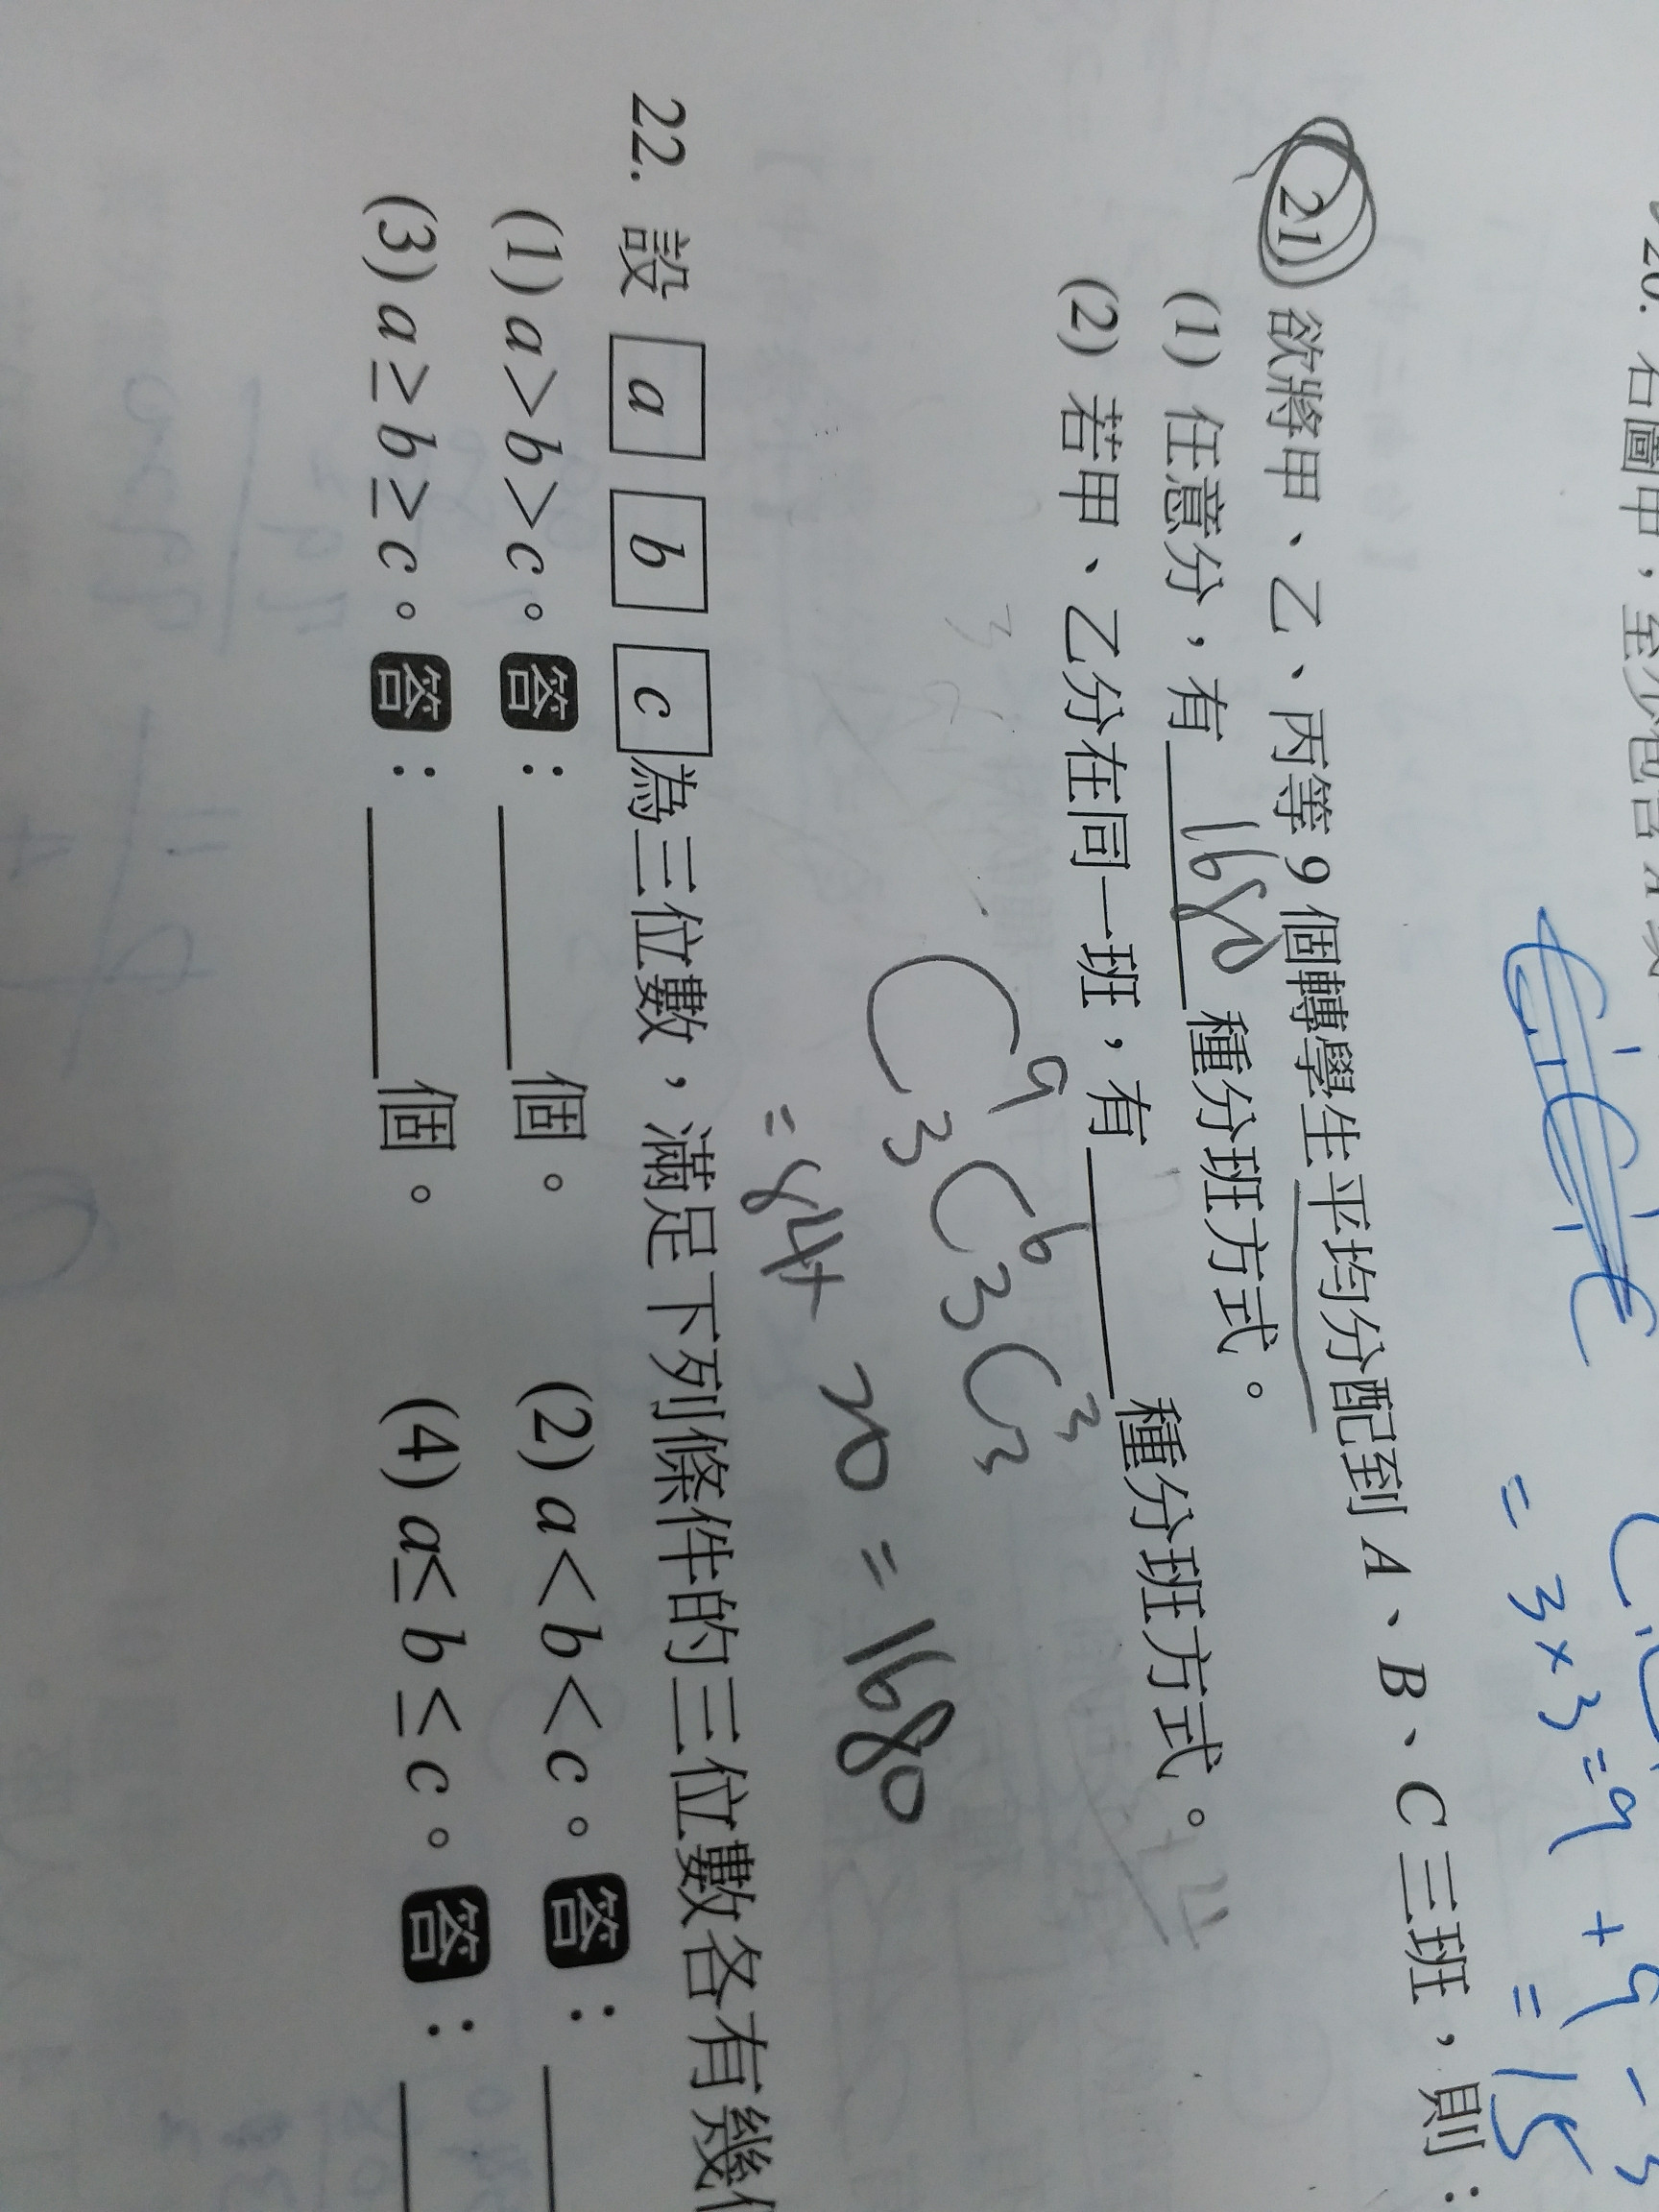 20. 右圖中，至少包含
= 3 × 3 = 9 + 9 -
= 15
21. 欲將甲、乙、丙等 9 個轉學生平均分配到 A、B、C 三班，則：
(1) 任意分，有 1680 種分班方式。
(2) 若甲、乙分在同一班，有______種分班方式。
C⁹₃C⁶₃C³₃
= 84 × 20 = 1680
22. 設 a b c 為三位數，滿足下列條件的三位數各有幾
(1) a > b > c。答：______個。 (2) a < b < c。答：______
(3) a ≥ b ≥ c。答：______個。 (4) a ≤ b ≤ c。答：______